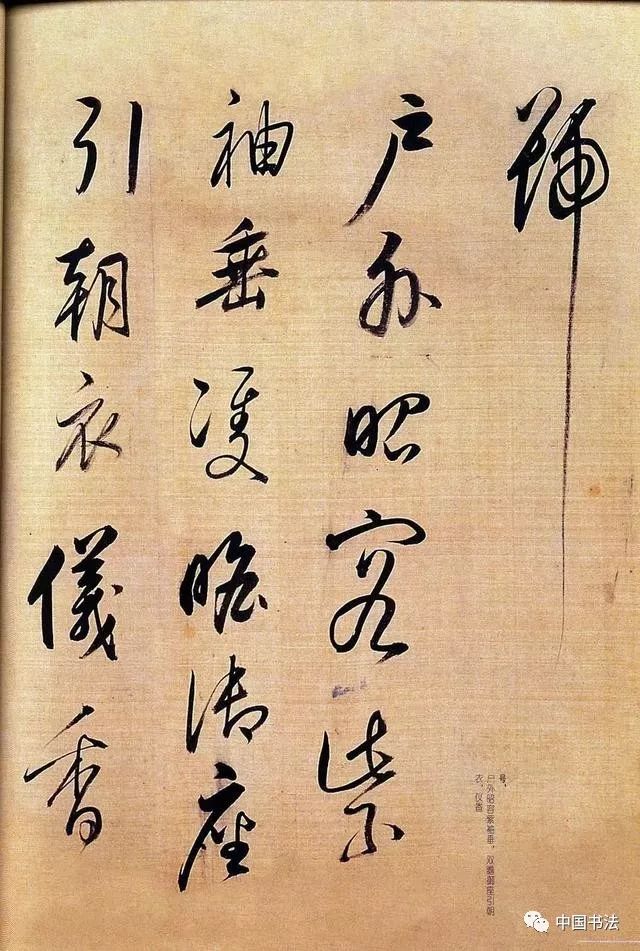 號
户外昭容紫
袖垂雙瞻御座
引朝衣儀香
号。
户外昭容紫袖垂，双瞻御座引朝
衣。仪香
中国书法